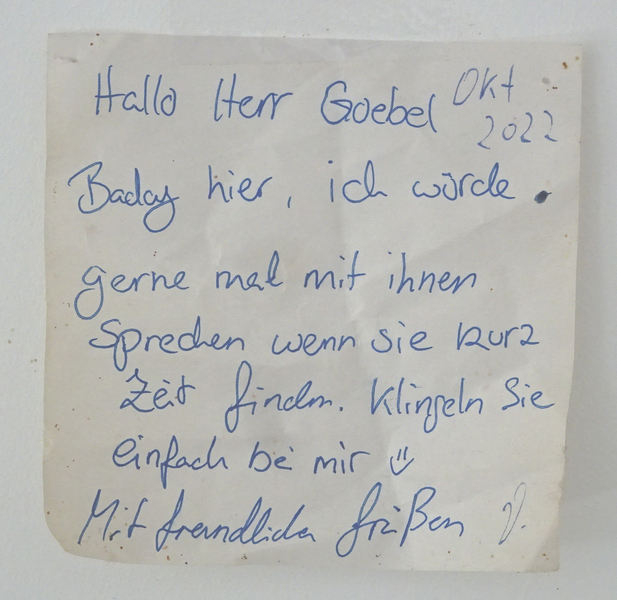 Hallo Herr Goebel Okt
2022
hier, ich würde
gerne mal mit ihnen.
Sprechen wenn sie kurz
Zeit finden. Klingeln Sie
einfach bei mir ☺
Mit freundlichen Grüßen